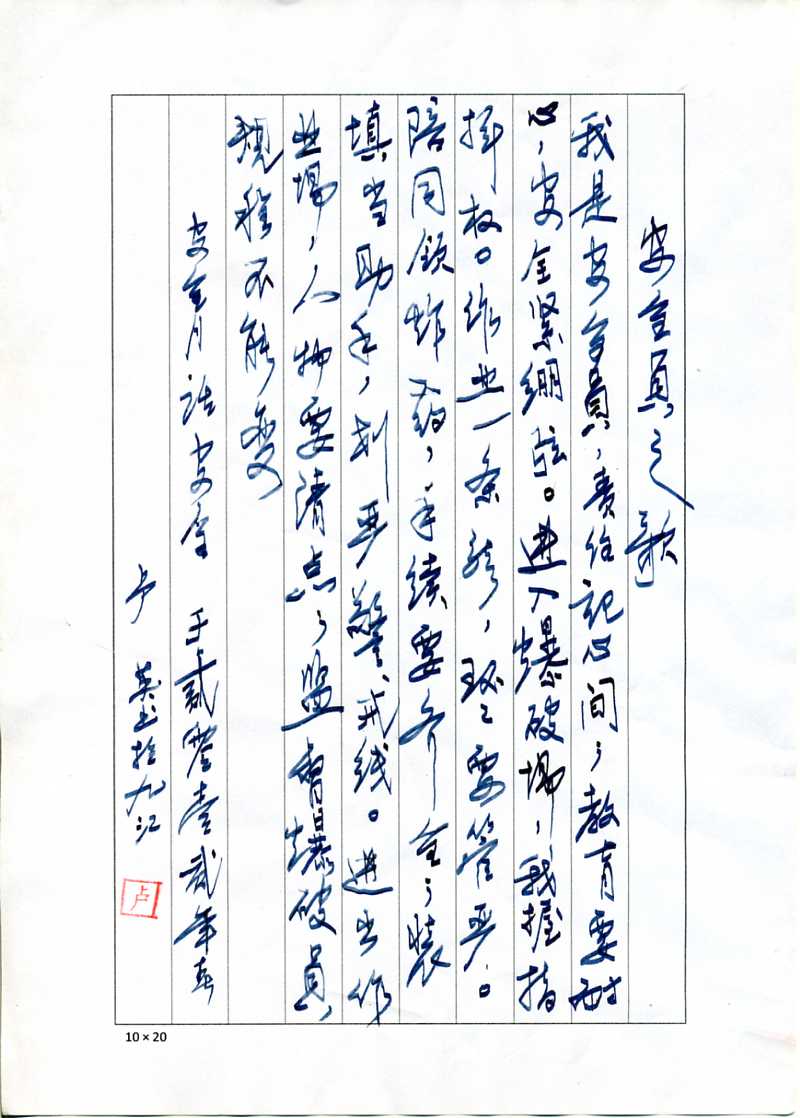 安全员之歌
我是安全员，责任记心间，教育要耐
心，安全紧绷弦。进入爆破场，我握指
挥权。作业一条龙，环之要管严。
陪同领炸药，手续要齐全，装
填当助手，划严警戒线。进出作
业场，人物要清点，监督爆破员，
规程不能变
安全月话安全 于贰零壹贰年春
卢 英 于九江
卢
10×20